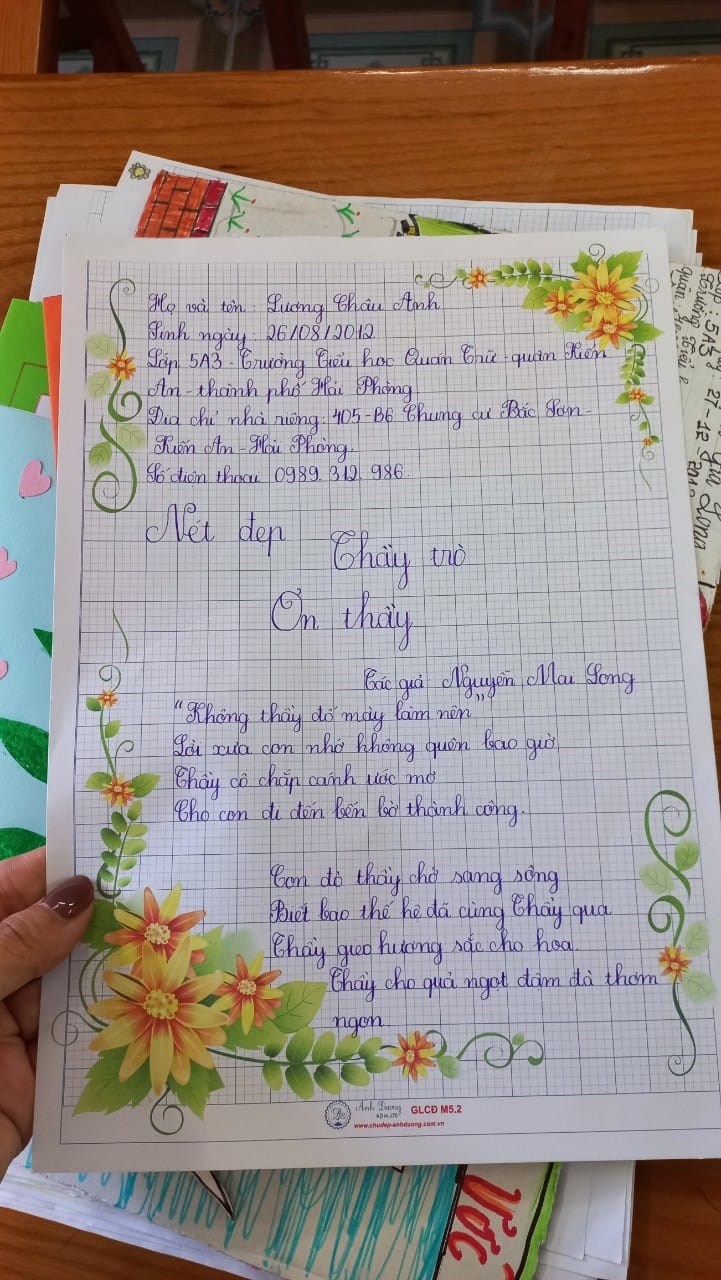 Họ và tên: Lương Châu Anh
Sinh ngày: 26/08/2012
Lớp 5A3 - Trường Tiểu học Quán Trữ - quận Kiến
An - thành phố Hải Phòng
Địa chỉ nhà riêng: 405-B6 Chung cư Bắc Sơn -
Kiến An - Hải Phòng.
Số điện thoại 0989. 312. 986.
Nét đẹp
Thầy trò
Ơn thầy
Tác giả Nguyễn Mai Long
"Không thầy đố mày làm nên"
Lời xưa con nhớ không quên bao giờ
Thầy cô chắp cánh ước mơ
Cho con đi đến bến bờ thành công.
Con đò thầy chở sang sông
Biết bao thế hệ đã cùng Thầy qua
Thầy gieo hương sắc cho hoa.
Thầy cho quả ngọt đậm đà thơm
ngon
Ánh Dương
GLCĐ M5.2
www.chudep-anhduong.com.vn
5A3
27-12-
ƯỚC